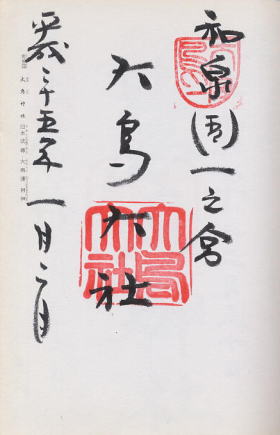 和泉國一之宮
大鳥大社
大鳥大社
平成二十五年一月二日